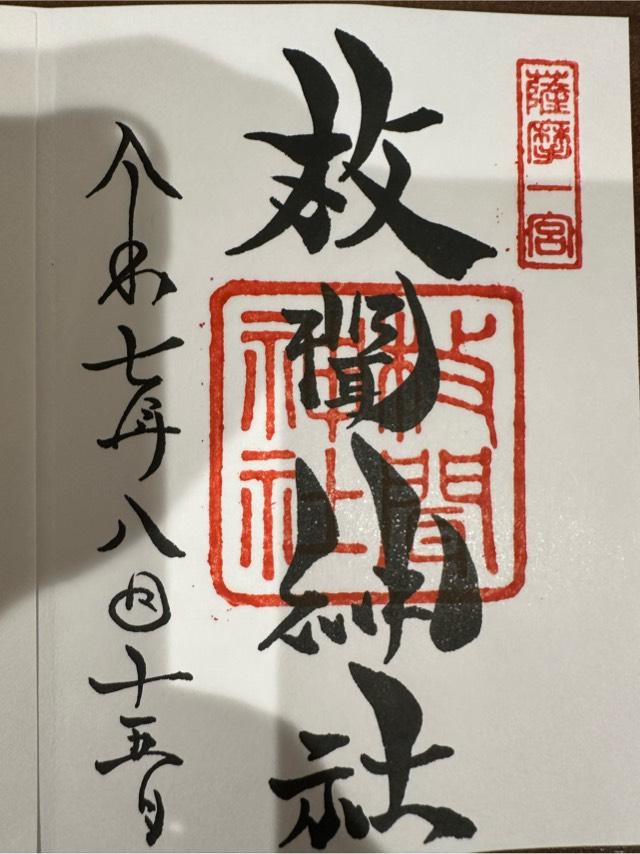 薩摩一宮
枚聞神社
枚聞
神社
令和七年八月十五日